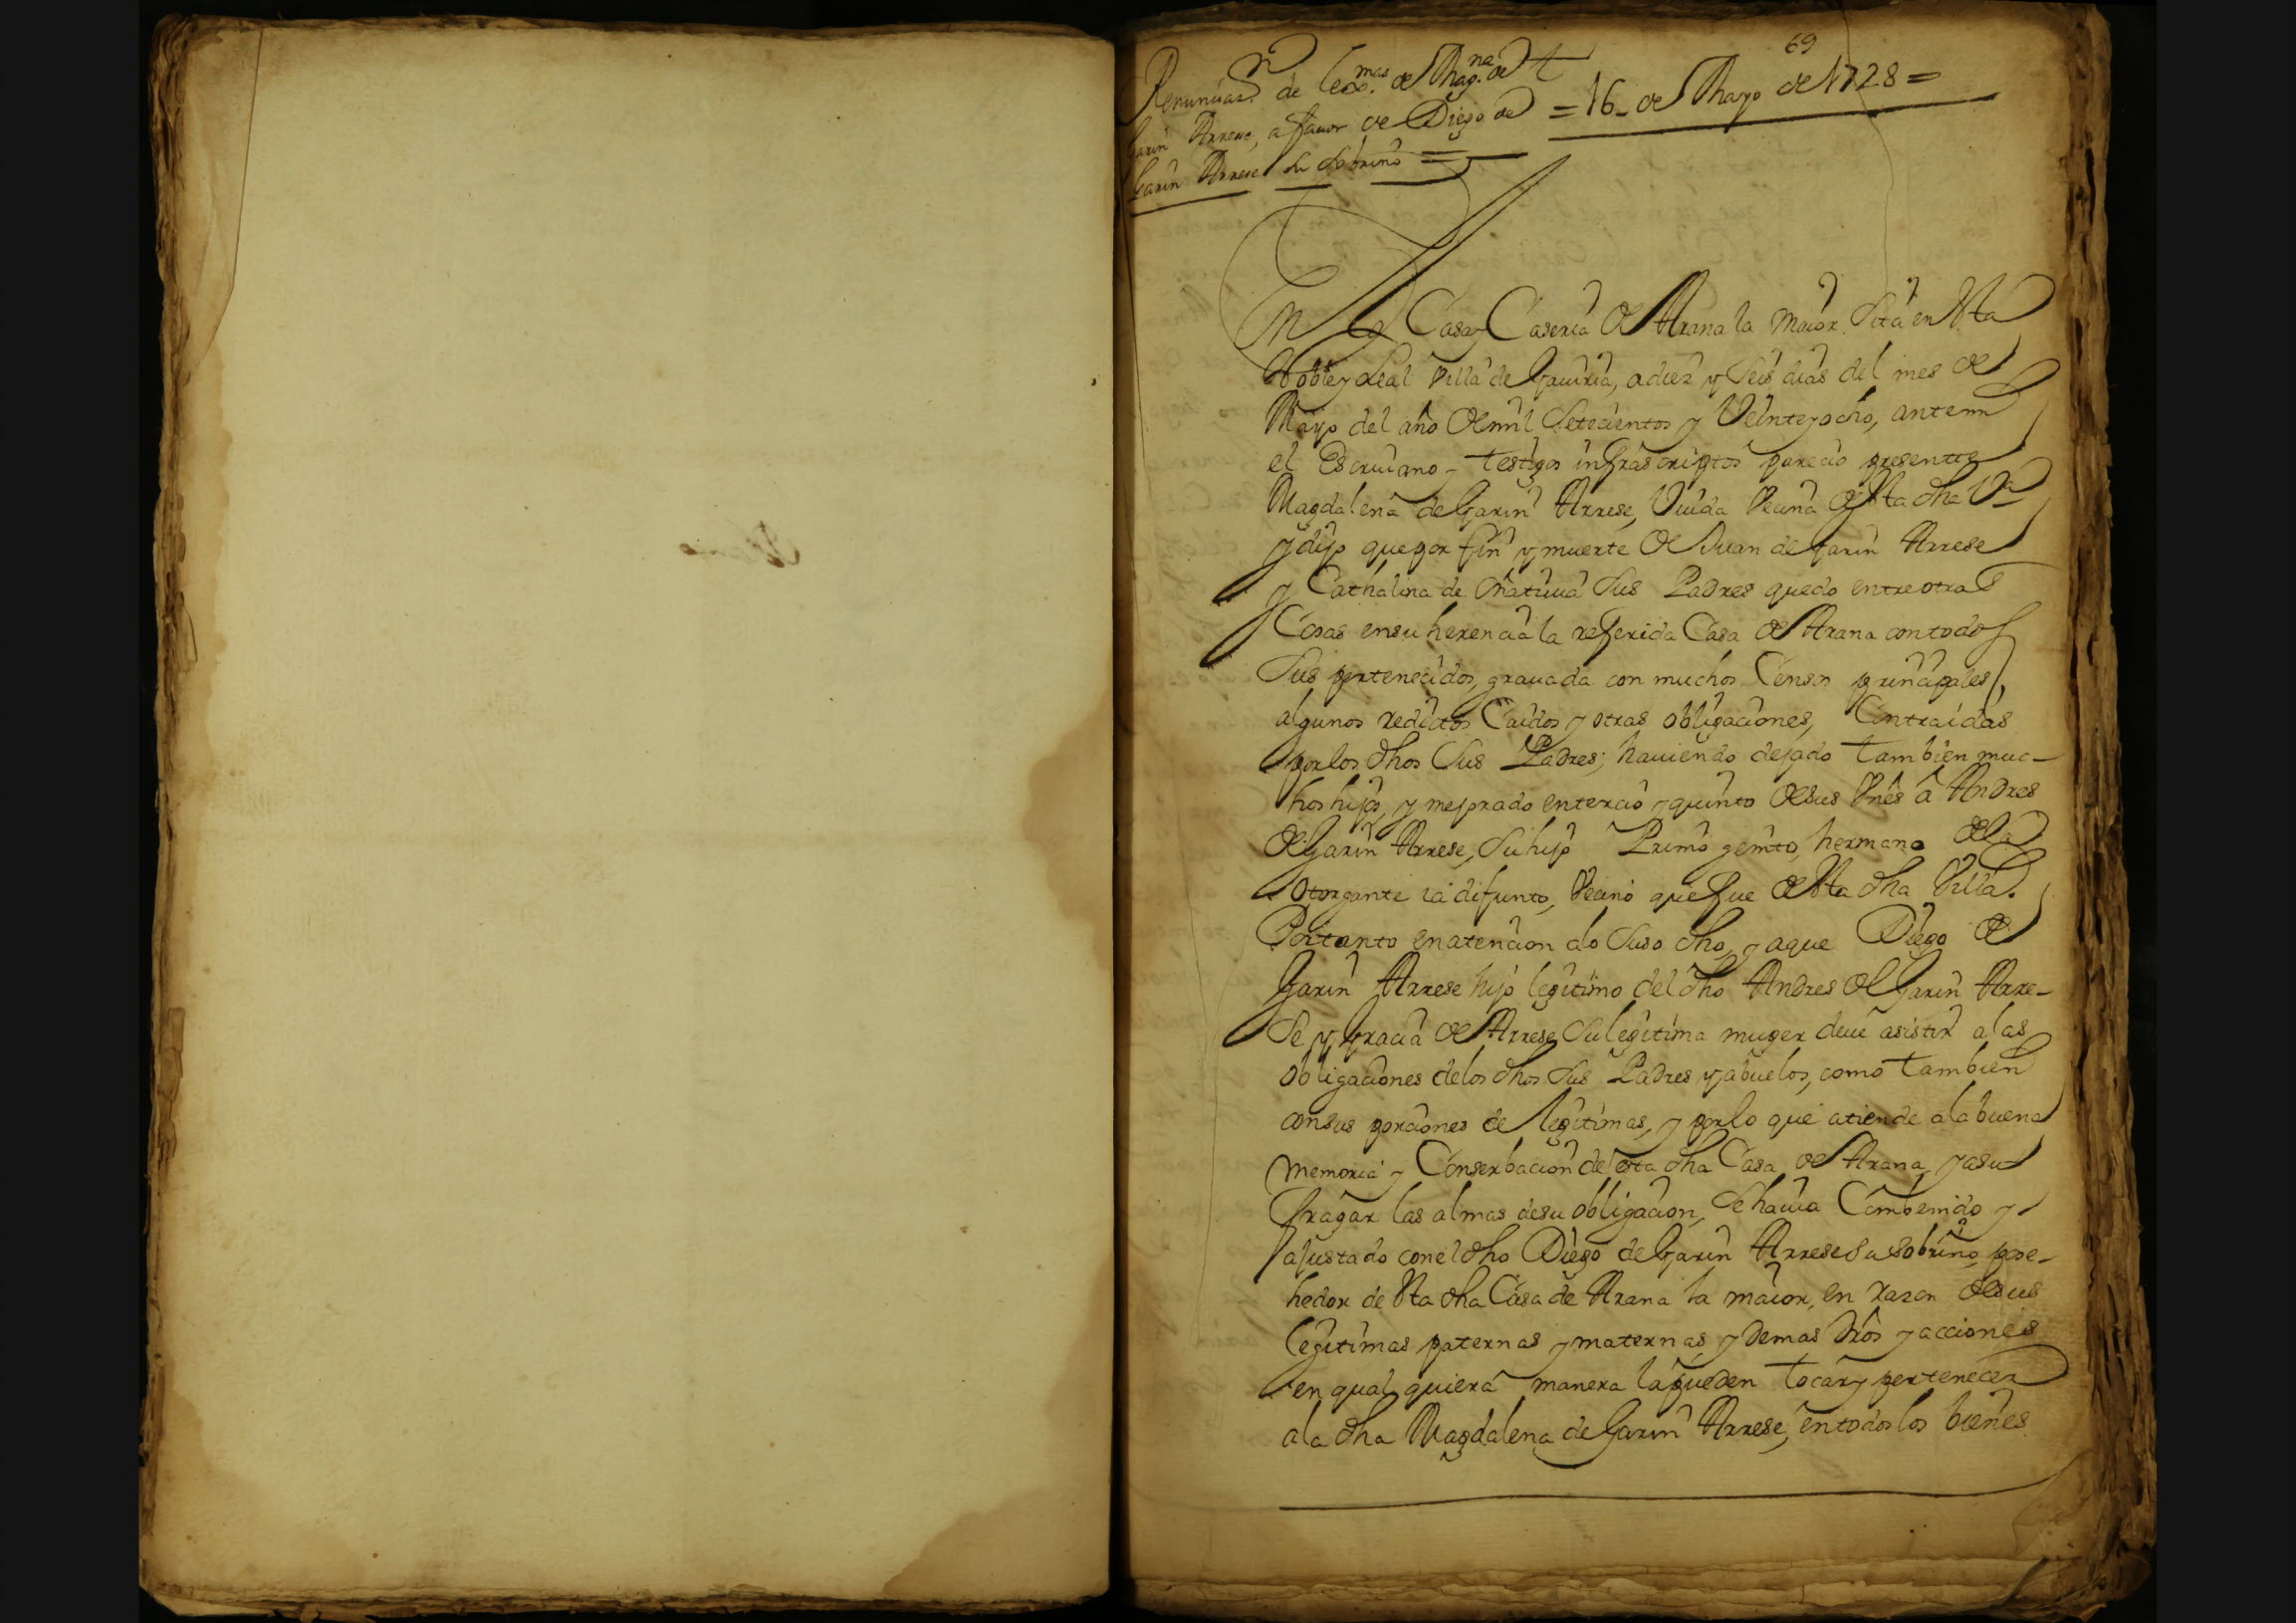 69
Renunciaz.n de lexmas. de Mag.na de
Garin Arrese, a favor de Diego de
Garin Arrese su sobrino =
= 16_ de Mayo de 1728 =
En la Casa y Caseria de Arana la maior Sita en Vta
Noble y Leal Villa de Gauiria, a diez y Seis dias del mes de
Mayo del año de mil Setecientos y Veinte y ocho, ante mi
el Escriuano y testigos infrascriptos parecio presente
Magdalena de Garin Arrese, Viuda Vecina de Vta dha Va
y dijo que por fin y muerte de Juan de Garin Arrese
y Cathalina de Oñatiuia Sus Padres quedo entre otras
Cosas en su herencia la referida Casa de Arana con todos
Sus pertenecidos, grauada con muchos Censos principales,
algunos reditos Caidos y otras obligaciones, Contraidas
por los dhos Sus Padres; hauiendo dejado tambien muc-
hos hijos, y mejorado en tercio y quinto de sus Vnes â Andres
de Garin Arrese, Su hijo Primo genito, hermano de la
otorgante ia difunto, Vecino que fue de Vta dha Villa.
Por tanto en atencion a lo Suso dho, y a que Diego de
Garin Arrese hijo legitimo del dho Andres de Garin Arre-
Se y Gracia de Arrese Su legitima muger deue asistir a las
obligaciones de los dhos Sus Padres y abuelos, como tambien
con sus porciones de legitimas, y por lo que atiende a la buena
memoria y Conserbacion de esta dha Casa de Arana, y a su
fragar las almas de su obligacion, Se hauia Combenido y
ajustado con el dho Diego de Garin Arrese Su sobrino, poe-
hedor de Vta dha Casa de Arana la maior, en razon de sus
legitimas paternas y maternas, y demas dros y acciones
en qual quiera manera la pueden tocar y pertenecer
a la dha Magdalena de Garin Arrese, en todos los bienes